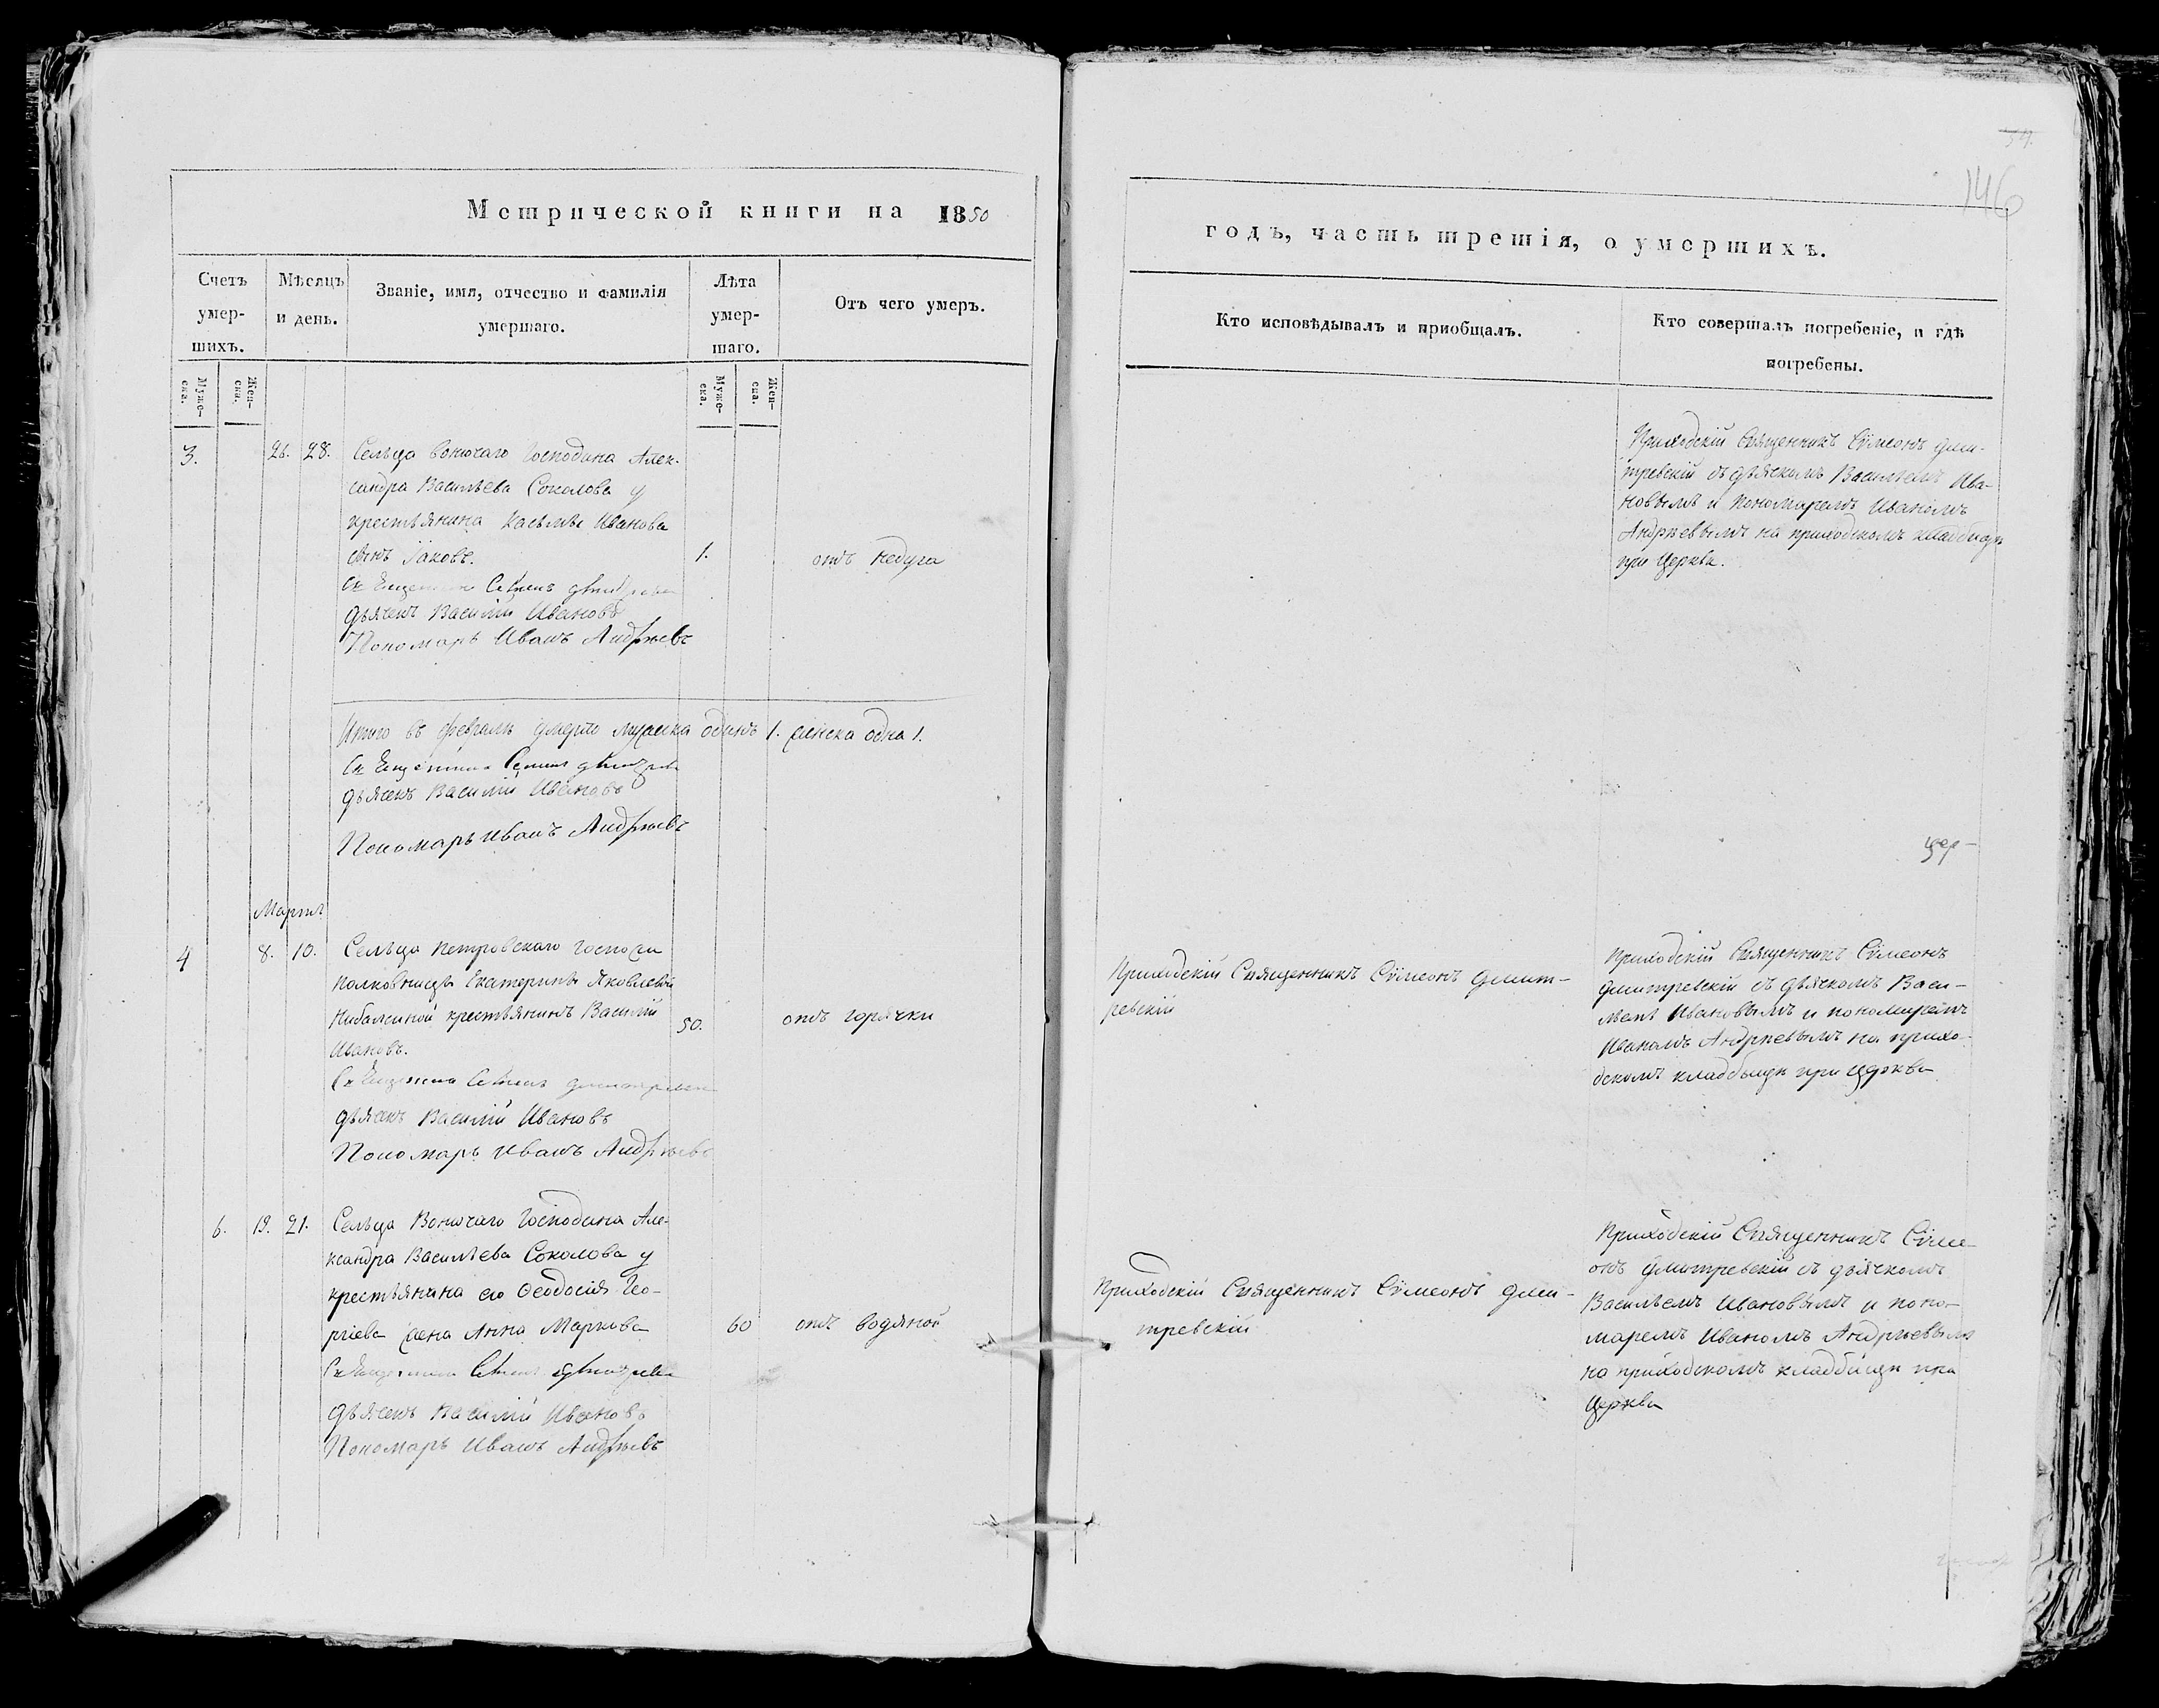 54.
146
Метрической книги на 1850
годъ, часть третія, о умершихъ.
Счетъ умер-шихъ.
Мѣсяцъ и день.
Званіе, имя, отчество и фамилія умершаго.
Лѣта умер-шаго.
Отъ чего умеръ.
Кто исповѣдывалъ и пріобщалъ.
Кто совершалъ погребеніе, и гдѣ погребены.
Муже-ска.
Жен-ска.
Муже-ска.
Жен-ска.
3. 26. 28. Сельца Вонючаго Господина Алек-
сандра Васильева Соколова у
крестьянина Касьмы Иванова
сынъ Іаковъ. 1. отъ недуга
Дьячекъ Василій Ивановъ
Пономарь Иванъ Андрѣевъ
Приходскій Священникъ Сѵмеонъ Дми-
тревскій съ дьячкомъ Васильемъ Ива-
новымъ и пономаремъ Иваномъ
Андрѣевымъ на приходскомъ кладбищѣ
при Церкви.
Итого въ февралѣ умерло мужска одинъ 1. женска одна 1.
Дьячекъ Василій Ивановъ
Пономарь Иванъ Андрѣевъ
цер-
Мартъ
4 8. 10. Сельца Петровскаго Госпожи
Полковницы Екатерины Яковлевой
крестьянинъ Василій
Ивановъ. 50. отъ горячки
Дьячекъ Василій Ивановъ
Пономарь Иванъ Андрѣевъ
Приходскій Священникъ Сѵмеонъ Дмит-
ревскій
Приходскій Священникъ Сѵмеонъ
Дмитревскій съ дьячкомъ Васи-
льемъ Ивановымъ и пономаремъ
Иваномъ Андрѣевымъ на прихо-
дскомъ кладбищѣ при Церкви
6. 19. 21. Сельца Вонючаго Господина Але-
ксандра Васильева Соколова у
крестьянина его Ѳеодосія Гео-
ргіева жена Анна Маркова 60 отъ водяной
Дьячекъ Василій Ивановъ
Пономарь Иванъ Андрѣевъ
Приходскій Священникъ Сѵмеонъ Дми-
тревскій
Приходскій Священникъ Сѵме-
онъ Дмитревскій съ дьячкомъ
Васильемъ Ивановымъ и поно-
маремъ Иваномъ Андрѣевымъ
на приходскомъ кладбищѣ при
Церкви